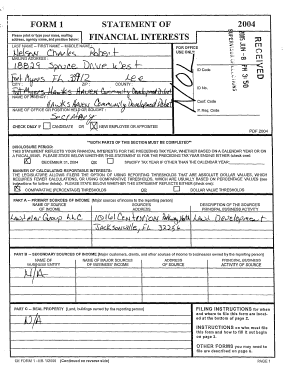 FORM 1 STATEMENT OF 2004
FINANCIAL INTERESTS
Please print or type your name, mailing address, agency name, and position below:
LAST NAME - FIRST NAME - MIDDLE NAME:
Nelson Charles Robert
MAILING ADDRESS:
18829 Spruce Drive West
Fort Myers FL 33912 Lee
CITY: ZIP: COUNTY:
NAME OF AGENCY:
Hawks Haven Community Development District
NAME OF OFFICE OR POSITION HELD OR SOUGHT:
Secretary
CHECK ONLY IF CANDIDATE OR NEW EMPLOYEE OR APPOINTEE
FOR OFFICE USE ONLY:
ID Code
ID No.
Conf. Code
P. Req. Code
RECEIVED
2005 JUN -8 PM 3:50
SUPERVISOR OF ELECTIONS
PDF 2004
**BOTH PARTS OF THIS SECTION MUST BE COMPLETED**
DISCLOSURE PERIOD:
THIS STATEMENT REFLECTS YOUR FINANCIAL INTERESTS FOR THE PRECEDING TAX YEAR, WHETHER BASED ON A CALENDAR YEAR OR ON A FISCAL YEAR. PLEASE STATE BELOW WHETHER THIS STATEMENT IS FOR THE PRECEDING TAX YEAR ENDING EITHER (check one):
DECEMBER 31, 2004 OR SPECIFY TAX YEAR IF OTHER THAN THE CALENDAR YEAR:
MANNER OF CALCULATING REPORTABLE INTERESTS:
THE LEGISLATURE ALLOWS FILERS THE OPTION OF USING REPORTING THRESHOLDS THAT ARE ABSOLUTE DOLLAR VALUES, WHICH REQUIRES FEWER CALCULATIONS, OR USING COMPARATIVE THRESHOLDS, WHICH ARE USUALLY BASED ON PERCENTAGE VALUES (see instructions for further details). PLEASE STATE BELOW WHETHER THIS STATEMENT REFLECTS EITHER (check one):
COMPARATIVE (PERCENTAGE) THRESHOLDS OR DOLLAR VALUE THRESHOLDS
PART A -- PRIMARY SOURCES OF INCOME [Major sources of income to the reporting person]
NAME OF SOURCE OF INCOME
SOURCE'S ADDRESS
DESCRIPTION OF THE SOURCE'S PRINCIPAL BUSINESS ACTIVITY
LandMar Group LLC 10161 Centurion Parkway North Land Development
Jacksonville, FL 32256
PART B -- SECONDARY SOURCES OF INCOME [Major customers, clients, and other sources of income to businesses owned by the reporting person]
NAME OF BUSINESS ENTITY
NAME OF MAJOR SOURCES OF BUSINESS' INCOME
ADDRESS OF SOURCE
PRINCIPAL BUSINESS ACTIVITY OF SOURCE
N/A
PART C -- REAL PROPERTY [Land, buildings owned by the reporting person]
N/A
FILING INSTRUCTIONS for when and where to file this form are located at the bottom of page 2.
INSTRUCTIONS on who must file this form and how to fill it out begin on page 3.
OTHER FORMS you may need to file are described on page 6.
CE FORM 1 - Eff. 1/2005 (Continued on reverse side) PAGE 1